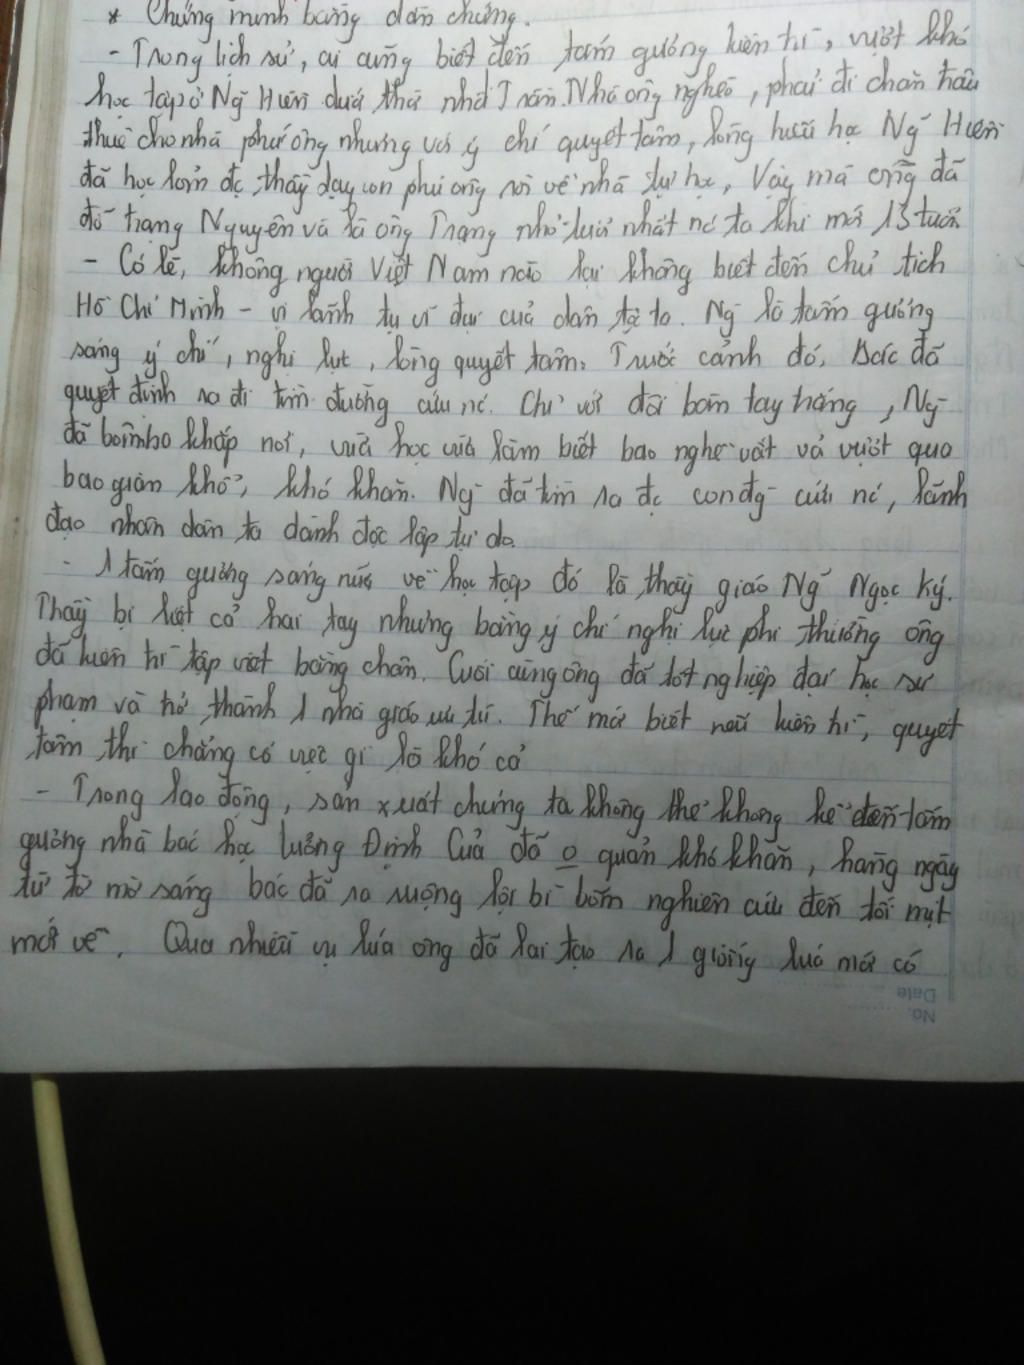 * Chứng minh bằng dẫn chứng.
- Trong lịch sử, ai cũng biết đến tấm gương kiên trì, vượt khó
học tập ở Ng~ Hiền dưới thời nhà Trần. Nhà ông nghèo, phải đi chăn trâu
thuê cho nhà phú ông nhưng với ý chí quyết tâm, lòng hiếu học Ng~ Hiền
đã học lỏm đc thầy dạy con phú ông rồi về nhà tự học, Vậy mà ông đã
đỗ trạng Nguyên và là ông Trạng nhỏ tuổi nhất nc ta khi mới 13 tuổi.
- Có lẽ, không người Việt Nam nào lại không biết đến chủ tich
Hồ Chí Minh - vị lãnh tụ vĩ đại của dân tộc ta. Ng là tấm gương
sáng ý chí, nghị lực, lòng quyết tâm. Trước cảnh đó, Bác đã
quyết định ra đi tìm đường cứu nc. Chỉ với đôi bàn tay trắng, Ng
đã bôn ba khắp nơi, vừa học vừa làm biết bao nghề vất vả vượt qua
bao gian khổ, khó khăn. Ng đã tìm ra đc con đg cứu nc, lãnh
đạo nhân dân ta dành độc lập tự do.
- 1 tấm gương sáng nữa về học tập đó là thầy giáo Ng~ Ngọc Ký.
Thầy bị liệt cả hai tay nhưng bằng ý chí nghị lực phi thường ông
đã kiên trì tập viết bằng chân. Cuối cùng ông đã tốt nghiệp đại học sư
phạm và trở thành 1 nhà giáo ưu tú. Thế mới biết nếu kiên trì, quyết
tâm thì chẳng có việc gì là khó cả
- Trong lao động, sản xuất chúng ta không thể không kể đến tấm
gương nhà bác học Lương Định Của đã o quản khó khăn, hằng ngày
từ tờ mờ sáng bác đã ra ruộng lội bì bõm nghiên cứu đến tối mịt
mới về. Qua nhiều vụ lúa ông đã lai tạo ra 1 giống lúa mới có
No.
Date